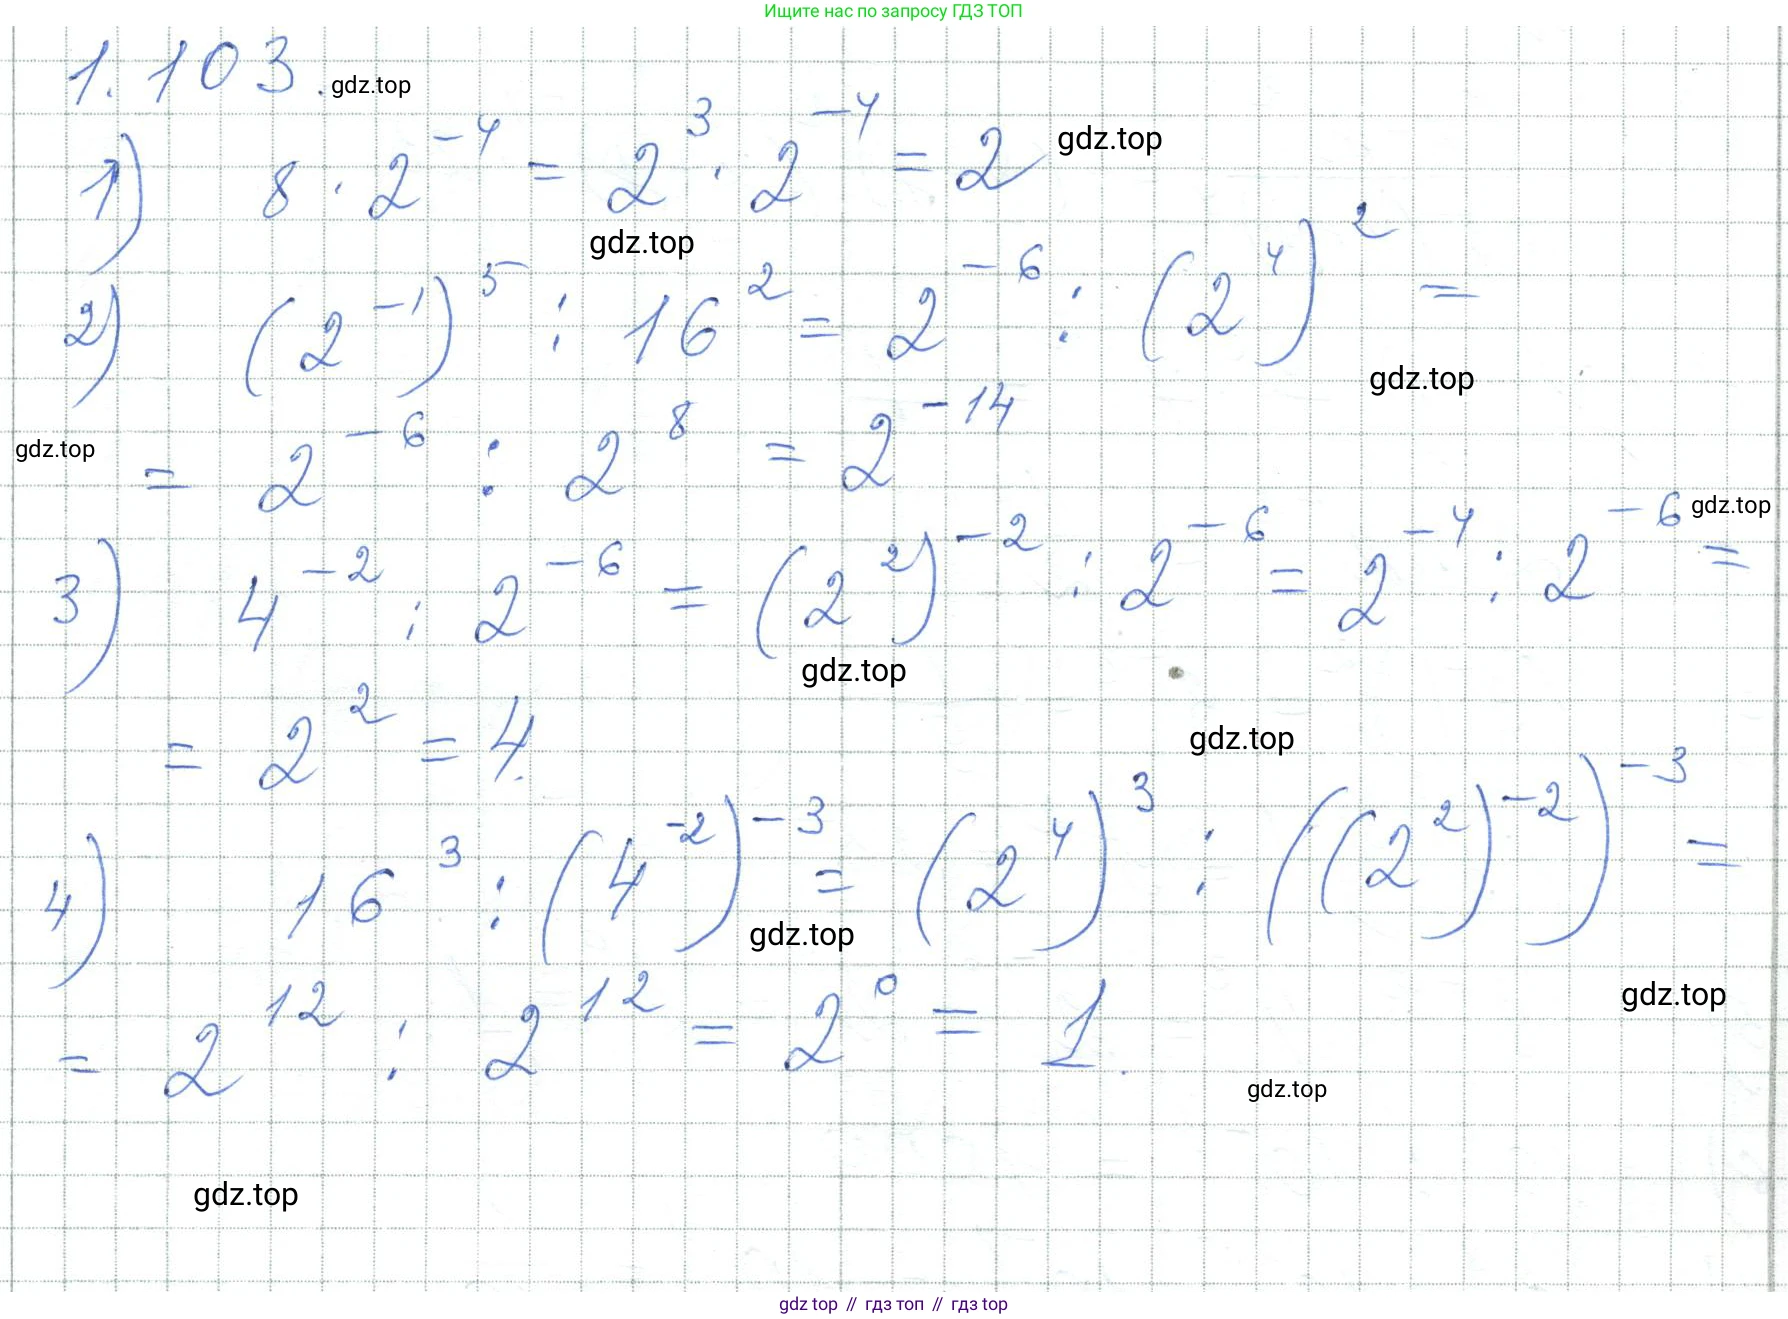 Ищите нас по запросу ГДЗ ТОП
1.103. gdz.top
1) 8 · 2⁻⁴ = 2³ · 2⁻⁴ = 2 gdz.top
gdz.top
2) (2⁻¹)⁵ : 16² = 2⁻⁶ : (2⁴)² =
gdz.top
gdz.top
= 2⁻⁶ : 2⁸ = 2⁻¹⁴
3) 4⁻² : 2⁻⁶ = (2²)⁻² : 2⁻⁶ = 2⁻⁴ : 2⁻⁶ = gdz.top
gdz.top
= 2² = 4.
gdz.top
4) 16³ : (4⁻²)⁻³ = (2⁴)³ : ((2²)⁻²)⁻³ =
gdz.top
gdz.top
= 2¹² : 2¹² = 2⁰ = 1.
gdz.top
gdz.top
gdz top // гдз топ // гдз top